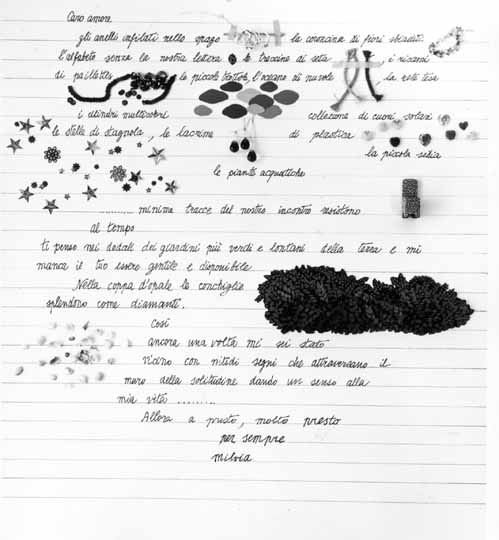 Caro amore
gli anelli infilati nello spago la coroncina di fiori sbiaditi
l'alfabeto senza la nostra lettera le treccine di seta , i ricami
di paillettes le piccole l'oceano di nuvole la rete tesa
i cilindri multicolori collezione di cuori,
le stelle di stagnola , le lacrime di plastica
la piccola sedia
le piante acquatiche
........... minime tracce del nostro incontro resistono
al tempo
ti penso nei dedali dei giardini più verdi e lontani della terra e mi
manca il tuo essere gentile e disponibile
Nella coppa d'opale le conchiglie
splendono come diamanti.
Così
ancora una volta mi sei stato
vicino con nitidi segni che attraversano il
muro della solitudine dando un senso alla
mia vita ..........
Allora a presto, molto presto
per sempre
milvia